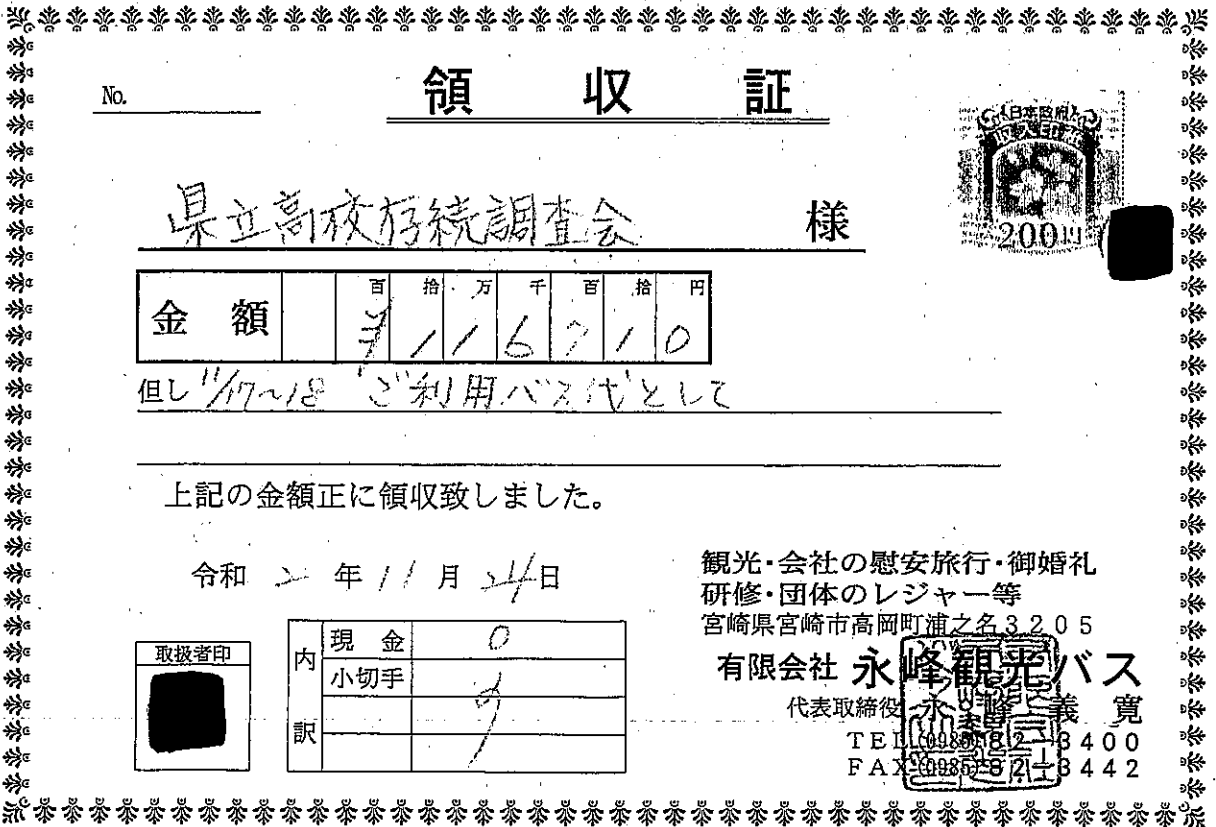 No.
領収証
日本政府
200円
県立高校存続調査会 様
金額 百 拾 万 千 百 拾 円
¥116710
但し 11/17~18 ご利用バス代として
上記の金額正に領収致しました。
令和 2 年 11 月 24 日
観光・会社の慰安旅行・御婚礼
研修・団体のレジャー等
宮崎県宮崎市高岡町浦之名3205
有限会社 永峰観光バス
代表取締役 永峰義寛
TEL (0985) 82-3400
FAX (0985) 82-3442
取扱者印
内訳
現金 0
小切手